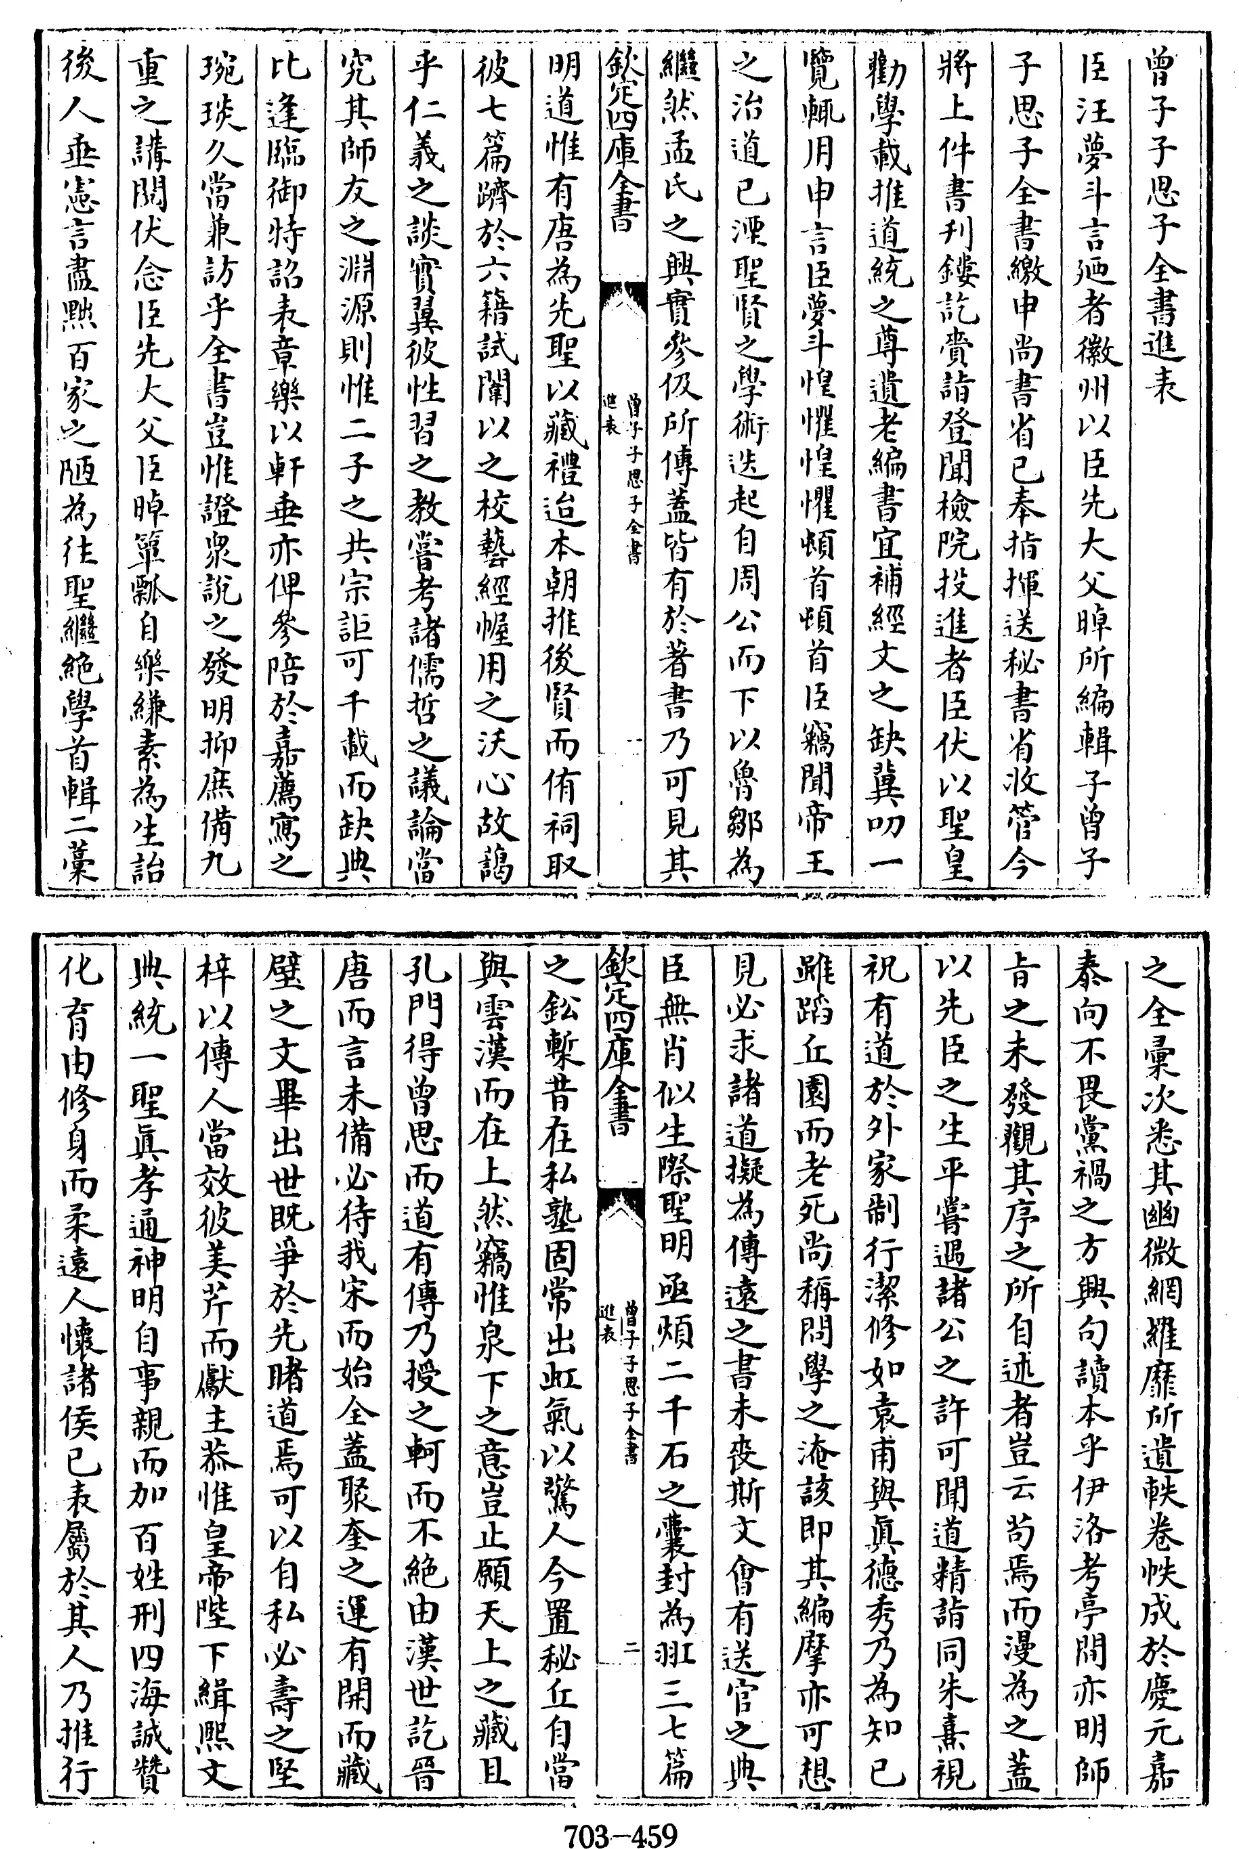 曾子子思子全書進表
臣汪夢斗言廼者徽州以臣先大父晫所編輯子曾子
子思子全書繳申尚書省已奉指揮送秘書省收管今
將上件書刊鏤訖賫詣登聞檢院投進者臣伏以聖皇
勸學載推道統之尊遺老編書宜補經文之缺冀叨一
覽輒用申言臣夢斗惶懼惶懼頓首頓首臣竊聞帝王
之治道已湮聖賢之學術迭起自周公而下以魯鄒為
繼然孟氏之興實參伋所傳蓋皆有於著書乃可見其
欽定四庫全書
曾子子思子全書
進表
一
明道惟有唐為先聖以藏禮迨本朝推後賢而侑祠取
彼七篇躋於六籍試闈以之校藝經幄用之沃心故藹
乎仁義之談實翼彼性習之教嘗考諸儒哲之議論當
究其師友之淵源則惟二子之共宗詎可千載而缺典
比逢臨御特詔表章樂以軒垂亦俾參陪於嘉薦寫之
琬琰久當兼訪乎全書豈惟證衆說之發明抑庶備九
重之講閱伏念臣先大父臣晫簞瓢自樂縑素為生詒
後人垂憲言盡黜百家之陋為往聖繼絶學首輯二藁
之全彙次悉其幽微網羅靡所遺軼卷帙成於慶元嘉
泰向不畏黨禍之方興句讀本乎伊洛考亭間亦明師
㫖之未發觀其序之所自述者豈云茍焉而漫為之蓋
以先臣之生平嘗遇諸公之許可聞道精詣同朱熹視
祝有道於外家制行潔修如袁甫與真德秀乃為知已
雖蹈丘園而老死尚稱問學之淹該即其編摩亦可想
見必求諸道擬為傳遠之書未喪斯文會有送官之典
臣無肖似生際聖明亟煩二千石之囊封為進三七篇
欽定四庫全書
曾子子思子全書
進表
二
之鉛槧昔在私塾固常出虹氣以驚人今置秘丘自當
與雲漢而在上然竊惟泉下之意豈止願天上之藏且
孔門得曾思而道有傳乃授之軻而不絶由漢世訖晉
唐而言未備必待我宋而始全蓋聚奎之運有開而藏
壁之文畢出世既爭於先睹道焉可以自私必壽之堅
梓以傳人當效彼美芹而獻主恭惟皇帝陛下緝熙文
典統一聖真孝通神明自事親而加百姓刑四海誠贊
化育由修身而柔遠人懷諸侯已表屬於其人乃推行
703-459